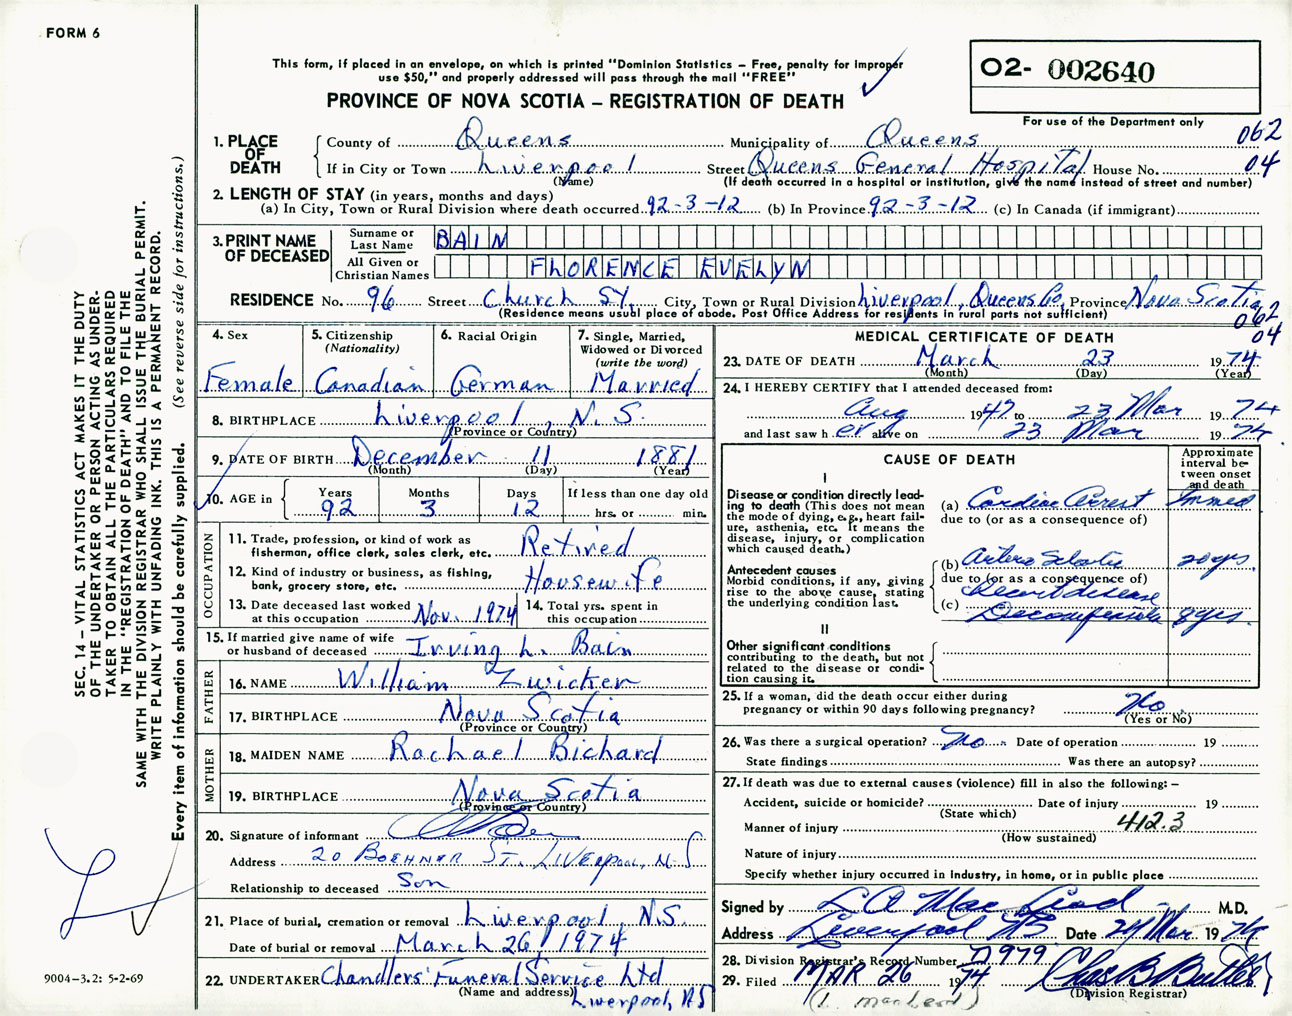 FORM 6
This form, if placed in an envelope, on which is printed "Dominion Statistics – Free, penalty for improper
use $50," and properly addressed will pass through the mail "FREE"
PROVINCE OF NOVA SCOTIA – REGISTRATION OF DEATH
O2- 002640
For use of the Department only
062
04
1. PLACE OF DEATH
County of Queens Municipality of Queens
If in City or Town Liverpool Street Queens General Hospital House No.
(Name) (If death occurred in a hospital or institution, give the name instead of street and number)
2. LENGTH OF STAY (in years, months and days)
(a) In City, Town or Rural Division where death occurred 92-3-12 (b) In Province 92-3-12 (c) In Canada (if immigrant)
3. PRINT NAME OF DECEASED
Surname or Last Name BAIN
All Given or Christian Names FLORENCE EVELYN
RESIDENCE No. 96 Street Church St. City, Town or Rural Division Liverpool, Queens Co. Province Nova Scotia
(Residence means usual place of abode. Post Office Address for residents in rural parts not sufficient)
062
04
4. Sex
Female
5. Citizenship
(Nationality)
Canadian
6. Racial Origin
German
7. Single, Married,
Widowed or Divorced
(write the word)
Married
8. BIRTHPLACE Liverpool, N.S.
(Province or Country)
9. DATE OF BIRTH December 11 1881
(Month) (Day) (Year)
10. AGE in
Years 92
Months 3
Days 12
If less than one day old
hrs. or min.
OCCUPATION
11. Trade, profession, or kind of work as
fisherman, office clerk, sales clerk, etc. Retired
12. Kind of industry or business, as fishing,
bank, grocery store, etc. Housewife
13. Date deceased last worked
at this occupation Nov. 1974
14. Total yrs. spent in
this occupation
15. If married give name of wife
or husband of deceased Irving L. Bain
FATHER
16. NAME William Zwicker
17. BIRTHPLACE Nova Scotia
(Province or Country)
MOTHER
18. MAIDEN NAME Rachael Bichard
19. BIRTHPLACE Nova Scotia
(Province or Country)
20. Signature of informant
Address 20 BOEHNER ST. LIVERPOOL, N.S
Relationship to deceased Son
21. Place of burial, cremation or removal Liverpool, N.S.
Date of burial or removal March 26, 1974
22. UNDERTAKER Chandlers' Funeral Service Ltd
(Name and address) Liverpool, NS
MEDICAL CERTIFICATE OF DEATH
23. DATE OF DEATH March 23 1974
(Month) (Day) (Year)
24. I HEREBY CERTIFY that I attended deceased from:
Aug 1947 to 23 Mar 1974
and last saw her alive on 23 Mar 1974
CAUSE OF DEATH
Approximate
interval be-
tween onset
and death
I
Disease or condition directly lead-
ing to death (This does not mean
the mode of dying, e.g., heart fail-
ure, asthenia, etc. It means the
disease, injury, or complication
which caused death.)
(a) Cardiac Arrest Immed
due to (or as a consequence of)
Antecedent causes
Morbid conditions, if any, giving
rise to the above cause, stating
the underlying condition last.
(b) 20 yrs.
due to (or as a consequence of)
Heart disease
(c) 8 yrs.
II
Other significant conditions
contributing to the death, but not
related to the disease or condi-
tion causing it.
25. If a woman, did the death occur either during
pregnancy or within 90 days following pregnancy? No
(Yes or No)
26. Was there a surgical operation? No Date of operation 19
State findings Was there an autopsy?
27. If death was due to external causes (violence) fill in also the following: –
Accident, suicide or homicide? Date of injury 19
(State which)
Manner of injury 412.3
(How sustained)
Nature of injury
Specify whether injury occurred in industry, in home, or in public place
Signed by L A MacLeod M.D.
Address Liverpool NS Date 24 Mar 1974
28. Division Registrar's Record Number 979
29. Filed MAR 26 1974 Chas B Butler
(Division Registrar)
(L. MacLeod)
SEC. 14 – VITAL STATISTICS ACT MAKES IT THE DUTY
OF THE UNDERTAKER OR PERSON ACTING AS UNDER-
TAKER TO OBTAIN ALL THE PARTICULARS REQUIRED
IN THE "REGISTRATION OF DEATH" AND TO FILE THE
SAME WITH THE DIVISION REGISTRAR WHO SHALL ISSUE THE BURIAL PERMIT.
WRITE PLAINLY WITH UNFADING INK. THIS IS A PERMANENT RECORD.
Every item of information should be carefully supplied. (See reverse side for instructions.)
9004-3.2: 5-2-69